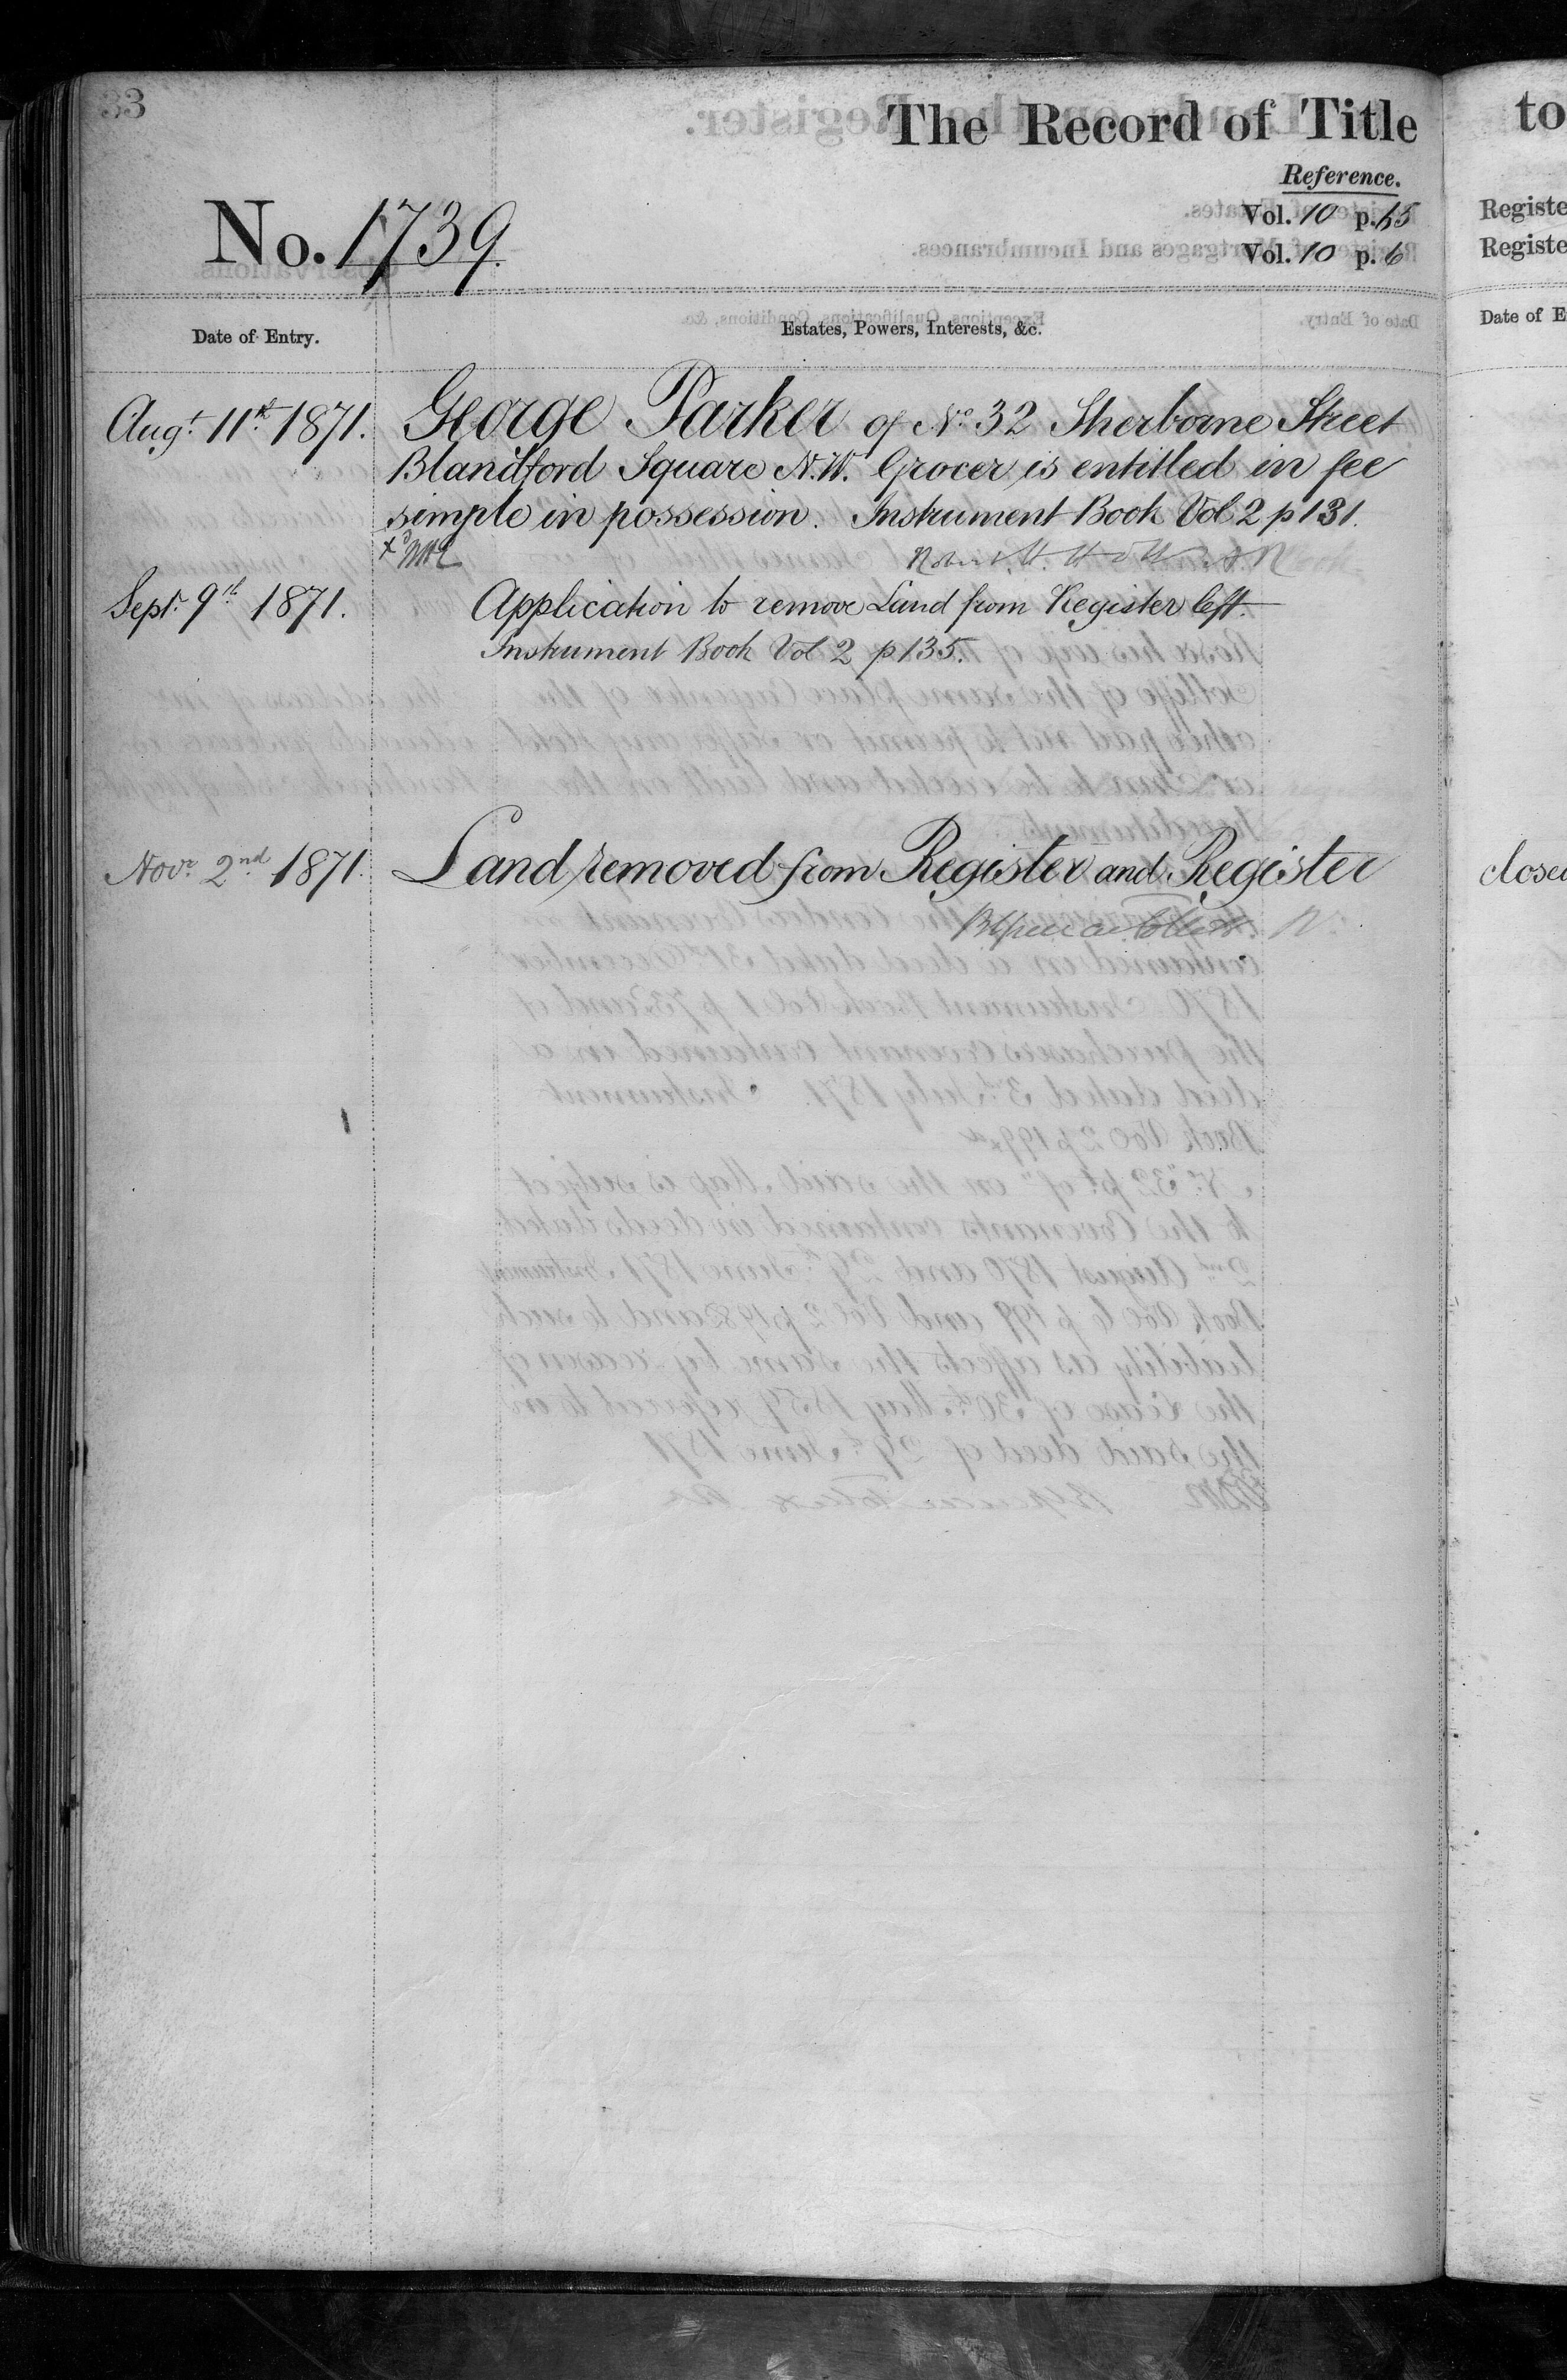 33
The Record of Title
Reference.
No. 1739.
Vol. 10 p. 65
Vol. 10 p. 6
Date of Entry.
Estates, Powers, Interests, &c.
Augt. 11th 1871. George Parker of No. 32 Sherborne Street
Blandford Square N.W. Grocer is entitled in fee
simple in possession. Instrument Book Vol 2 p 131.
Robert H. Holt
Septr. 9th 1871. Application to remove Land from Register left.
Instrument Book Vol 2 p 135.
Novr. 2nd 1871. Land removed from Register and Register
to
Registe
Registe
Date of E
closed